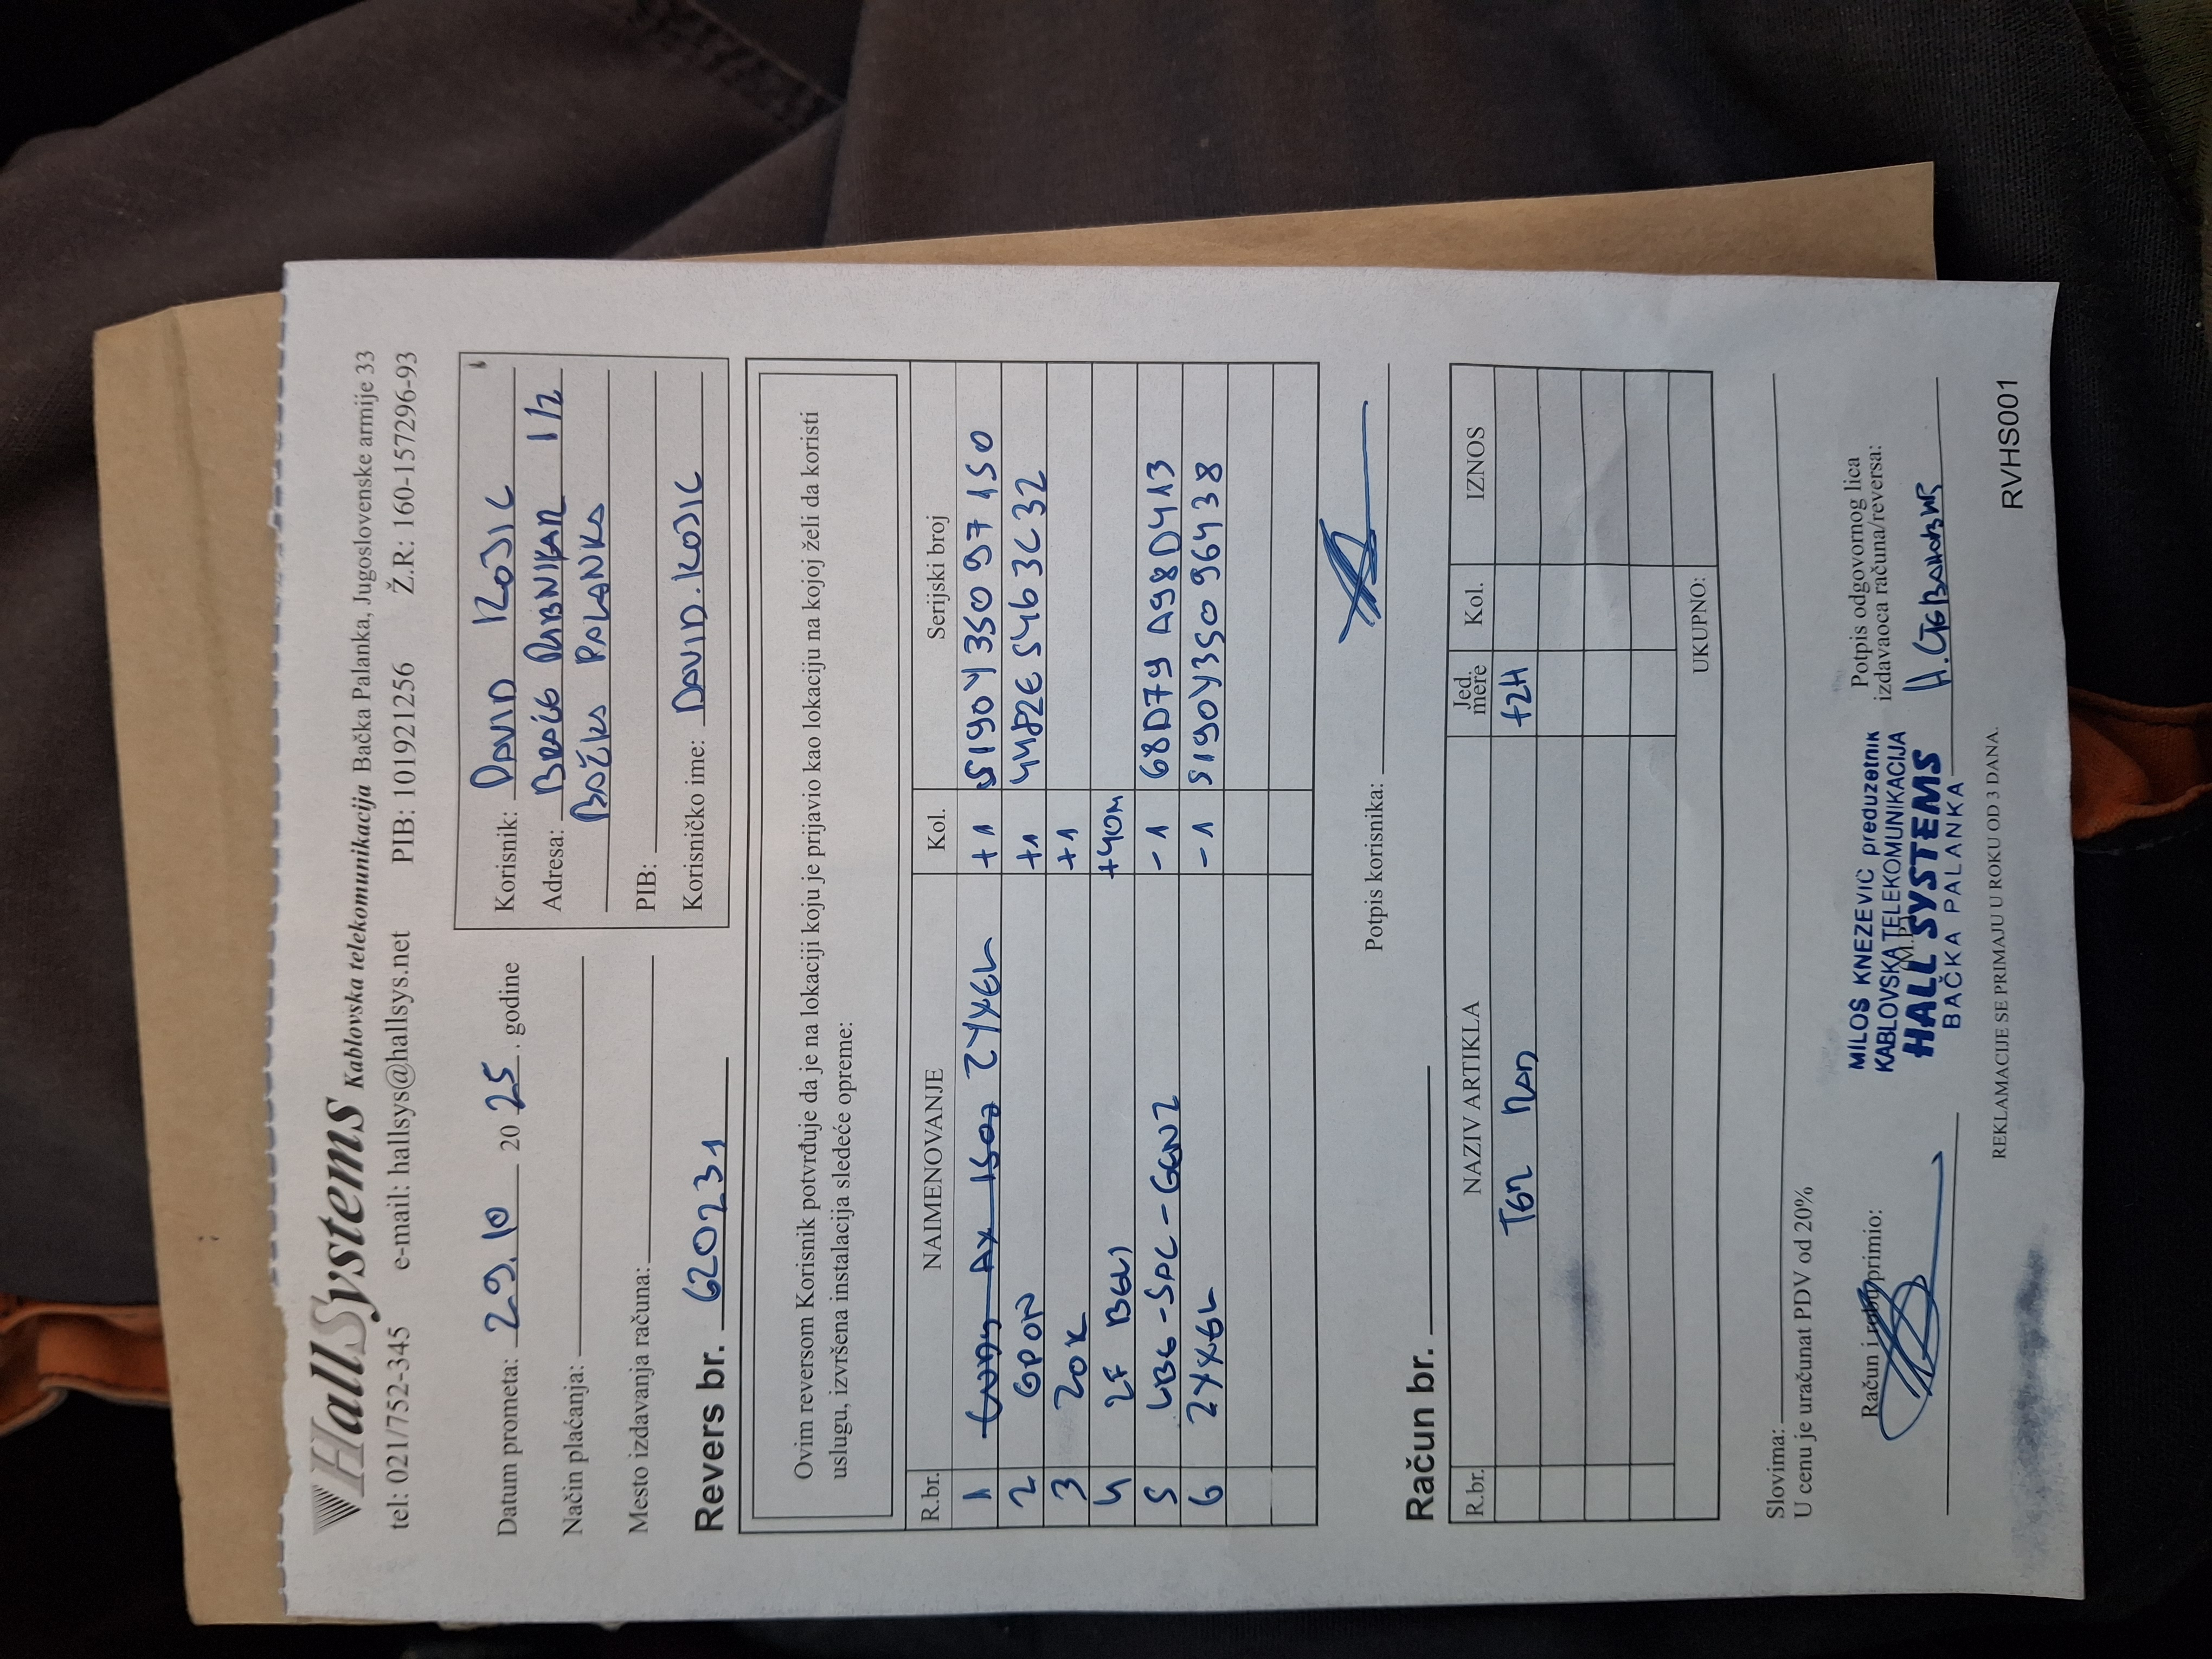 HallSystems Kablovska telekomunikacija Bačka Palanka, Jugoslovenske armije 33
tel: 021/752-345 e-mail: hallsys@hallsys.net PIB: 101921256 Ž.R: 160-157296-93
Datum prometa: 29.10 2025. godine
Način plaćanja:
Mesto izdavanja računa:
Revers br. 620231
Korisnik: DAVID KOJIC
Adresa: BRAĆE RIBNIKAR 1/2
BAČKA PALANKA
PIB:
Korisničko ime: DAVID.KOJIC
Ovim reversom Korisnik potvrđuje da je na lokaciji koju je prijavio kao lokaciju na kojoj želi da koristi
uslugu, izvršena instalacija sledeće opreme:
R.br. NAIMENOVANJE Kol. Serijski broj
1 ZYXEL +1 S190Y35097150
2 GPON +1 4482E5463C32
3 ZOK +1
4 2F BELI +40M
5 LBE-5AC-GEN2 -1 68D79A98D413
6 ZYXEL -1 S190Y35096438
Potpis korisnika:
Račun br.
R.br. NAZIV ARTIKLA Jed. mere Kol. IZNOS
ТЕП РАД +2H
UKUPNO:
Slovima:
U cenu je uračunat PDV od 20%
Račun i robu primio:
MILOS KNEZEVIĆ preduzetnik
KABLOVSKA TELEKOMUNIKACIJA
HALL SYSTEMS
BAČKA PALANKA
M.P.
Potpis odgovornog lica
izdavaoca računa/reversa:
REKLAMACIJE SE PRIMAJU U ROKU OD 3 DANA.
RVHS001